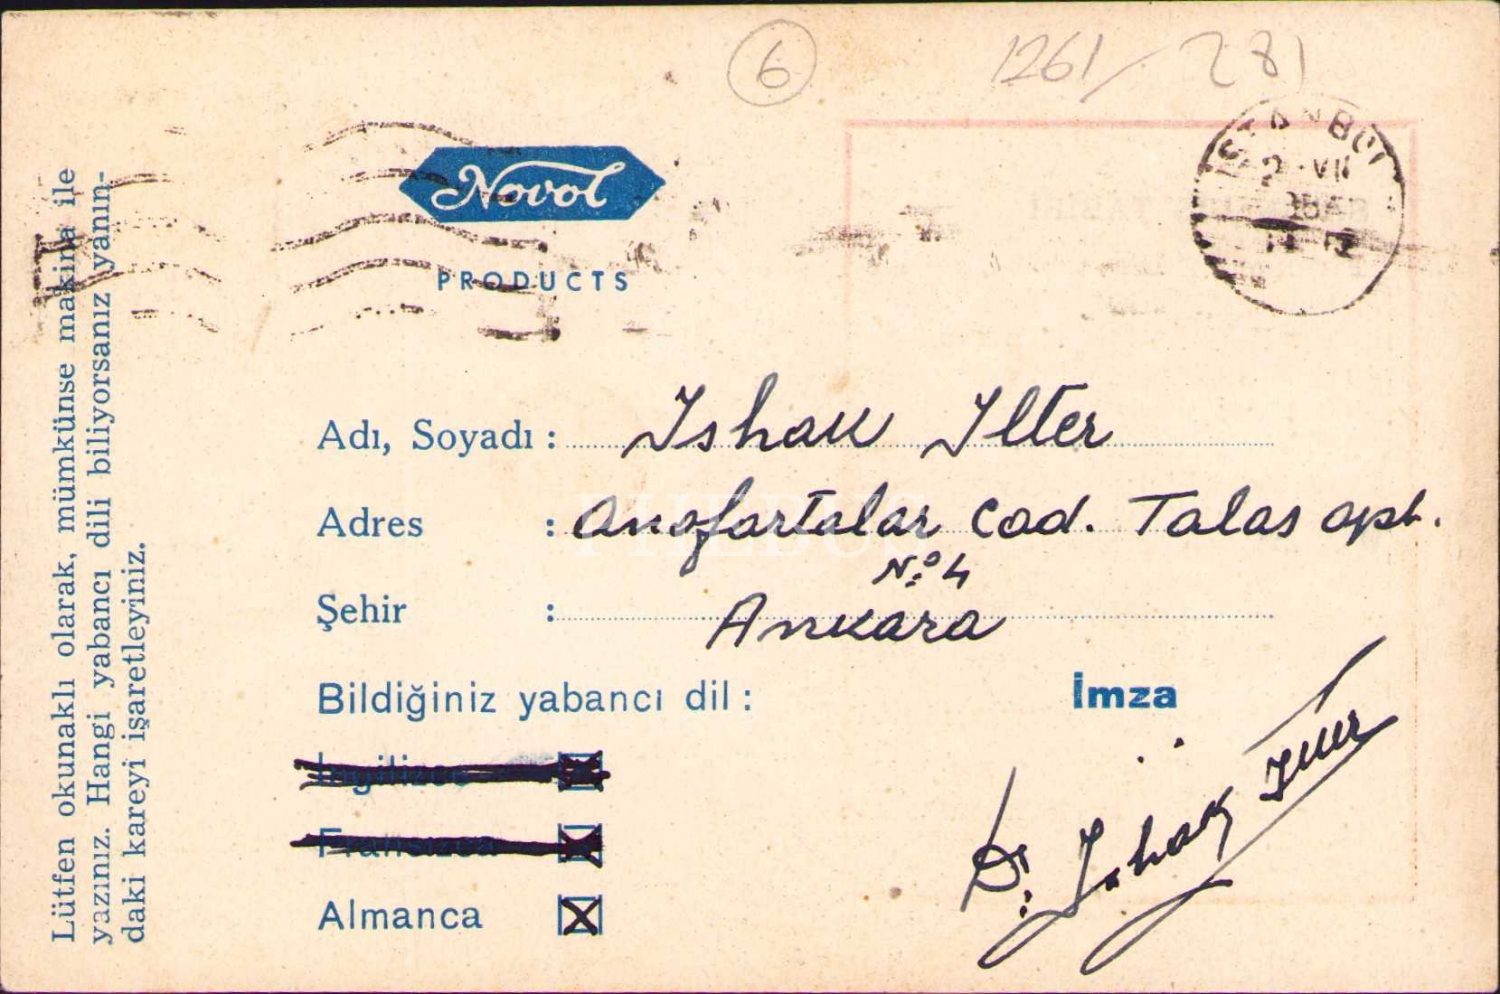 6
1261/281
Novol
PRODUCTS
İSTANBUL
2 VII
Lütfen okunaklı olarak, mümkünse makina ile
yazınız. Hangi yabancı dili biliyorsanız yanın-
daki kareyi işaretleyiniz.
Adı, Soyadı : Ishak Ilter
Adres : Anafartalar Cad. Talas apt.
N:o 4
Şehir : Ankara
Bildiğiniz yabancı dil :
İmza
İngilizce
Fransızca
Almanca
Dr. Ishak Ilter
PHEBUS